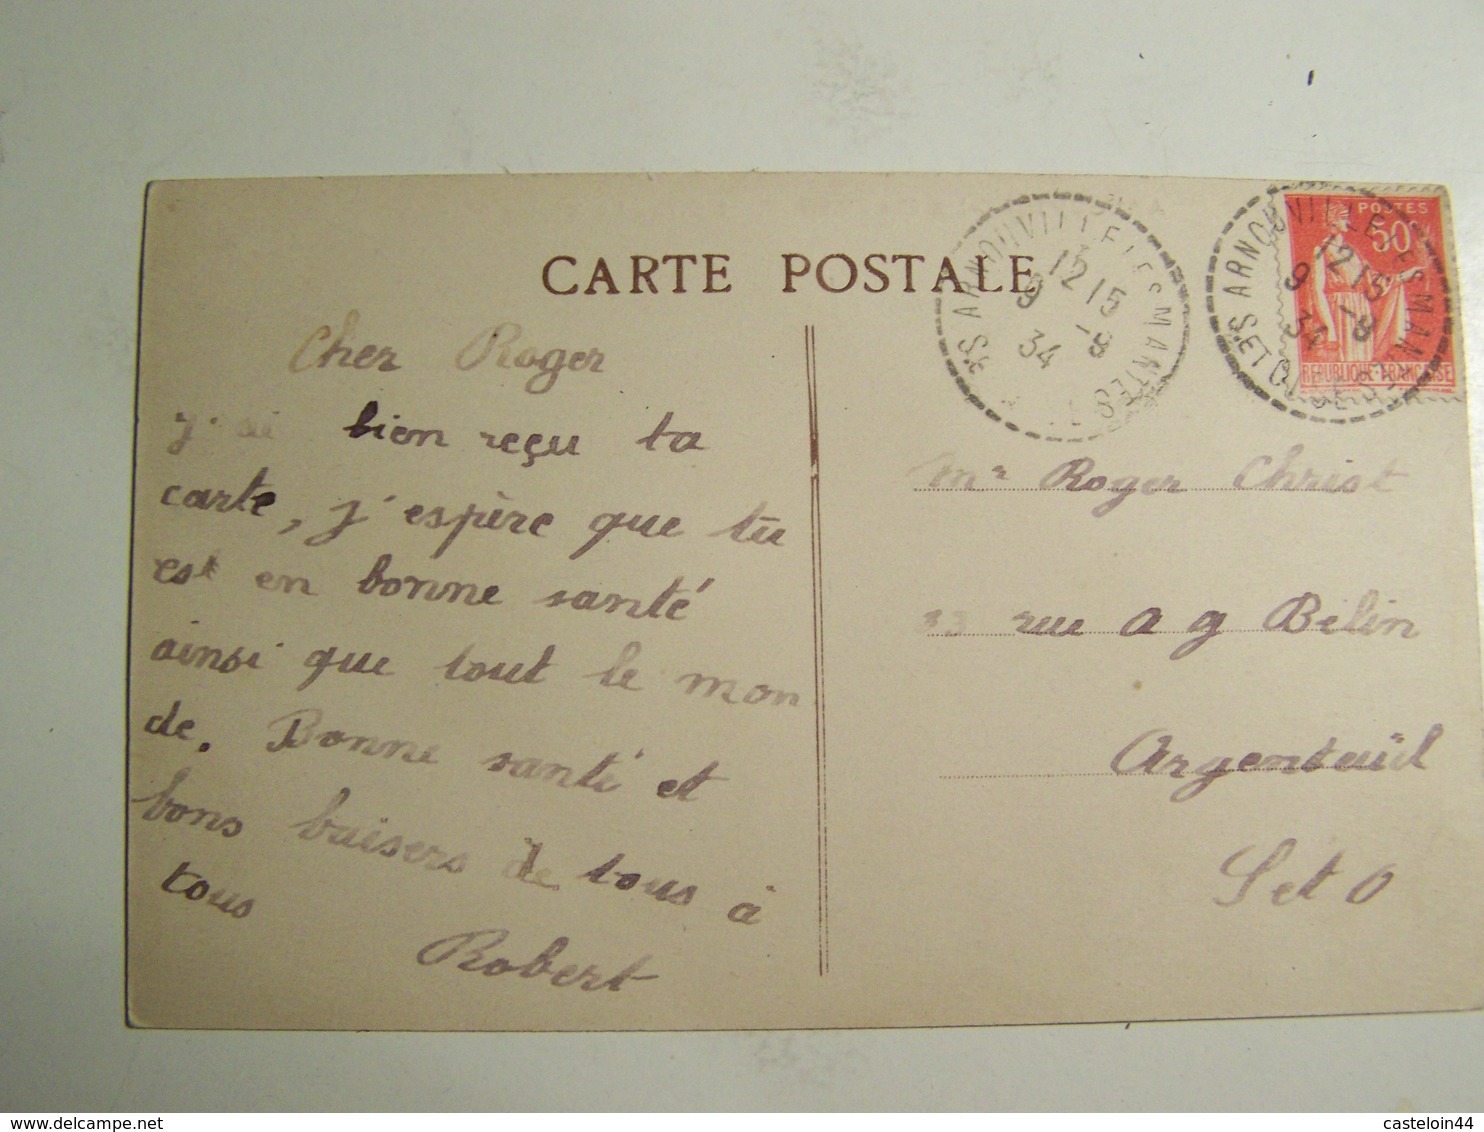 CARTE POSTALE
Cher Roger
j'ai bien reçu ta
carte, j'espère que tu
est en bonne santé
ainsi que tout le mon
de. Bonne santé et
bons baisers de tous à
tous
Robert
ARNOUVILLE LES MANTES
12 15
9 -8
34
S. ET O.
ARNOUVILLE LES MANTES
12 15
9 -8
34
S. ET OISE
POSTES
50c
REPUBLIQUE FRANÇAISE
Mr Roger Christ
rue a g Belin
Argenteuil
S et O
www.delcampe.net
casteloin44